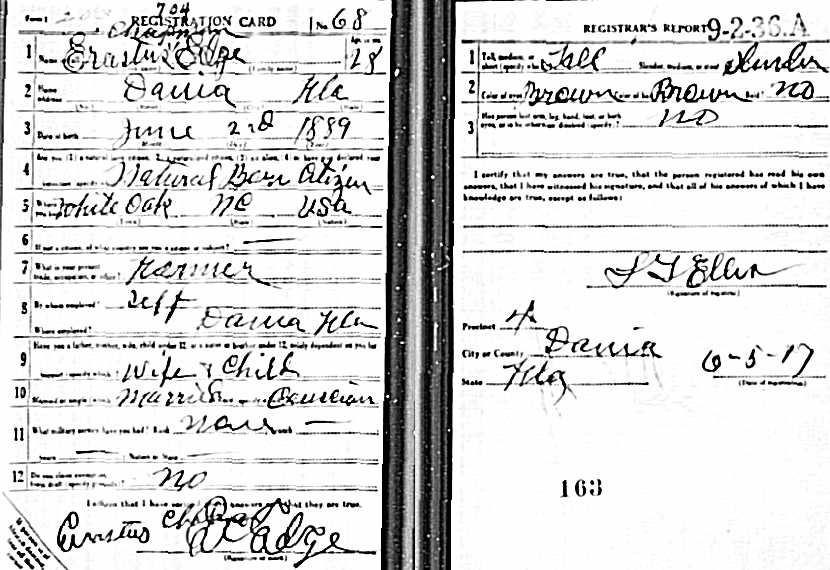 Form 1 704 REGISTRATION CARD No. 68
Chapman
1 Name Erastus Edge Age, in yrs. 28
2 Home address Dania Fla
3 Date of birth June 2nd 1889
4 Natural Born Citizen
5 Where White Oak NC USA
6 If not a citizen, of what country are you a citizen or subject?
7 What is your present trade, occupation, or office? Farmer
8 By whom employed? Self
Where employed? Dania Fla
9 Have you a father, mother, wife, child under 12, or a sister or brother under 12, solely dependent on you for
support (specify which)? Wife & Child
10 Married or single (which)? Married Race (specify which)? Caucasian
11 What military service have you had? Rank None branch
years Nation or State
12 Do you claim exemption from draft (specify grounds)? No
I affirm that I have verified above answers and that they are true.
Erastus Chapman Edge
(Signature or mark)
REGISTRAR'S REPORT 9-2-36.A
1 Tall, medium, or short (specify which)? Tall Slender, medium, or stout Slender
2 Color of eyes Brown Color of hair Brown Bald? No
3 Has person lost arm, leg, hand, foot, or both eyes, or is he otherwise disabled (specify)? No
I certify that my answers are true, that the person registered has read his own
answers, that I have witnessed his signature, and that all of his answers of which I have
knowledge are true, except as follows:
(Signature of registrar)
Precinct 4
City or County Dania
State Fla 6-5-17
(Date of registration)
163